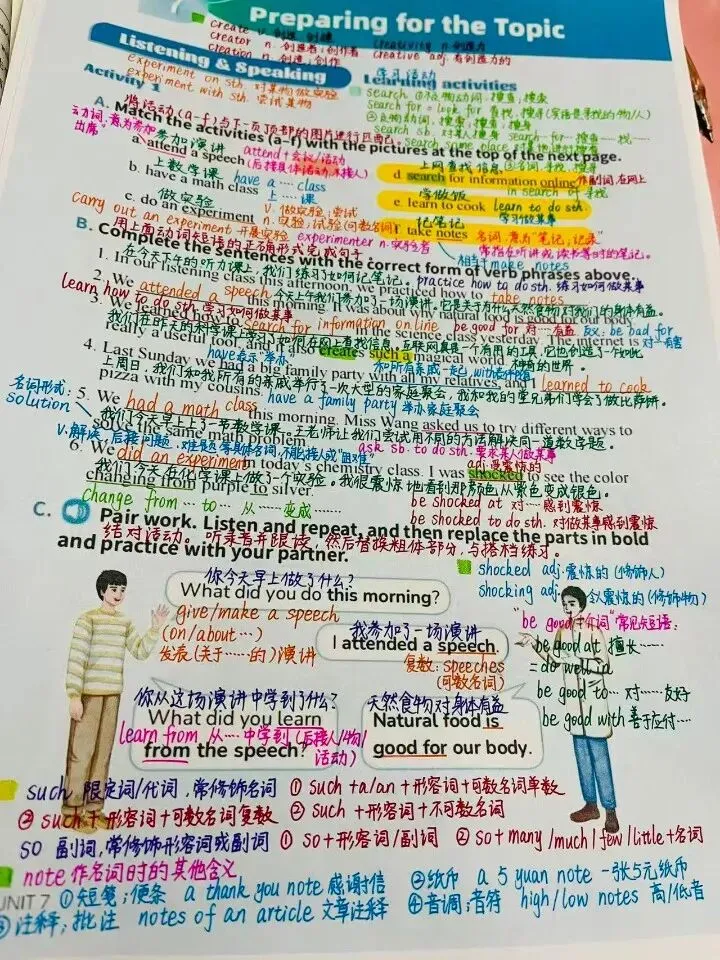 Preparing for the Topic
create v. 创造, 创建
creator n. 创造者; 创作者 creativity n. 创造力
creation n. 创造; 创作 creative adj. 有创造力的
Listening & Speaking
experiment on sth. 对某物做实验
experiment with sth. 尝试某物
Activity 1
学习活动
Learning activities
search ①及物动词: 搜查; 搜索
search for = look for 查找, 搜寻
search sb. 对某人搜身 search for
search some place
将活动(a-f)与下一页顶部的图片进行匹配。
A. Match the activities (a–f) with the pictures at the top of the next page.
动词, 意为参加
出席"
参加演讲
a. attend a speech
attend+会议/活动
(后接具体活动,不接人)
上网查找信息
d. search for information online
作副词, 在网上
上数学课
b. have a math class have a …… class
上……课
in search of 寻找
学做饭
e. learn to cook learn to do sth.
学习做某事
做实验
c. do an experiment
v. 做实验; 尝试
n. 实验; 试验(可数名词)
记笔记
f. take notes 名词, 意为"笔记, 记录"
carry out an experiment 开展实验 experimenter n. 实验者
常指在听讲或读书等时的笔记。
相当于make notes
用上面动词短语的正确形式完成句子
B. Complete the sentences with the correct form of verb phrases above.
在今天下午的听力课上, 我们练习了如何记笔记。 practice how to do sth. 练习如何做某事
1. In our listening class this afternoon, we practiced how to take notes.
2. We attended a speech this morning. It was about why natural food is good for our body.
今天上午我们参加了一场演讲,它是关于为什么天然食物对我们的身体有益。
learn how to do sth. 学习如何做某事
be good for 对…有益 反: be bad for 对…有害
3. We learned how to search for information online in the science class yesterday. The internet is
我们在昨天的科学课上学习了如何在网上查找信息。互联网真是一个有用的工具,它也创造了一个如此
really a useful tool, and it also creates such a magical world. 神奇的世界。
have表示"举办"
和所有亲戚一起, with
4. Last Sunday we had a big family party with all my relatives, and I learned to cook
上周日, 我们和我所有的亲戚举行了一次大型的家庭聚会, 我和我的堂兄弟们学会了做比萨饼。
pizza with my cousins. have a family party 举办家庭聚会
名词形式:
solution
5. We had a math class this morning. Miss Wang asked us to try different ways to
我们今天早上上了一节数学课, 王老师让我们尝试用不同的方法解决同一道数学题。
solve the same math problem.
v. 解决, 后接问题、难题等具体名词, 不能接人或"困难"
ask sb. to do sth. 要求某人做某事
adj. 震惊的
6. We did an experiment in today's chemistry class. I was shocked to see the color
我们今天在化学课上做了一个实验。我很震惊地看到那颜色从紫色变成银色。
changing from purple to silver.
change from …… to …… 从……变成……
be shocked at 对……感到震惊
be shocked to do sth. 对做某事感到震惊
C. Pair work. Listen and repeat, and then replace the parts in bold
结对活动。听录音并跟读, 然后替换粗体部分, 与搭档练习。
and practice with your partner.
shocked adj. 震惊的(修饰人)
shocking adj. 令人震惊的(修饰物)
你今天早上做了什么?
What did you do this morning?
give/make a speech
(on/about …)
发表(关于……的)演讲
我参加了一场演讲
I attended a speech.
复数: speeches
(可数名词)
"be good+介词"常见短语:
be good at 擅长……
= do well in
be good to… 对……友好
be good with 善于应付…
你从这场演讲中学到了什么?
What did you learn
learn from 从……中学到(后接人/物/活动)
from the speech?
天然食物对身体有益
Natural food is
good for our body.
such 限定词/代词, 常修饰名词 ① such+a/an+形容词+可数名词单数
② such+形容词+可数名词复数 ③ such+形容词+不可数名词
so 副词, 常修饰形容词或副词 ① so+形容词/副词 ② so+many/much/few/little+名词
note 作名词时的其他含义
UNIT 7
①短笺; 便条 a thank you note 感谢信 ②纸币 a 5 yuan note 一张5元纸币
③注释; 批注 notes of an article 文章注释 ④音调; 音符 high/low notes 高/低音